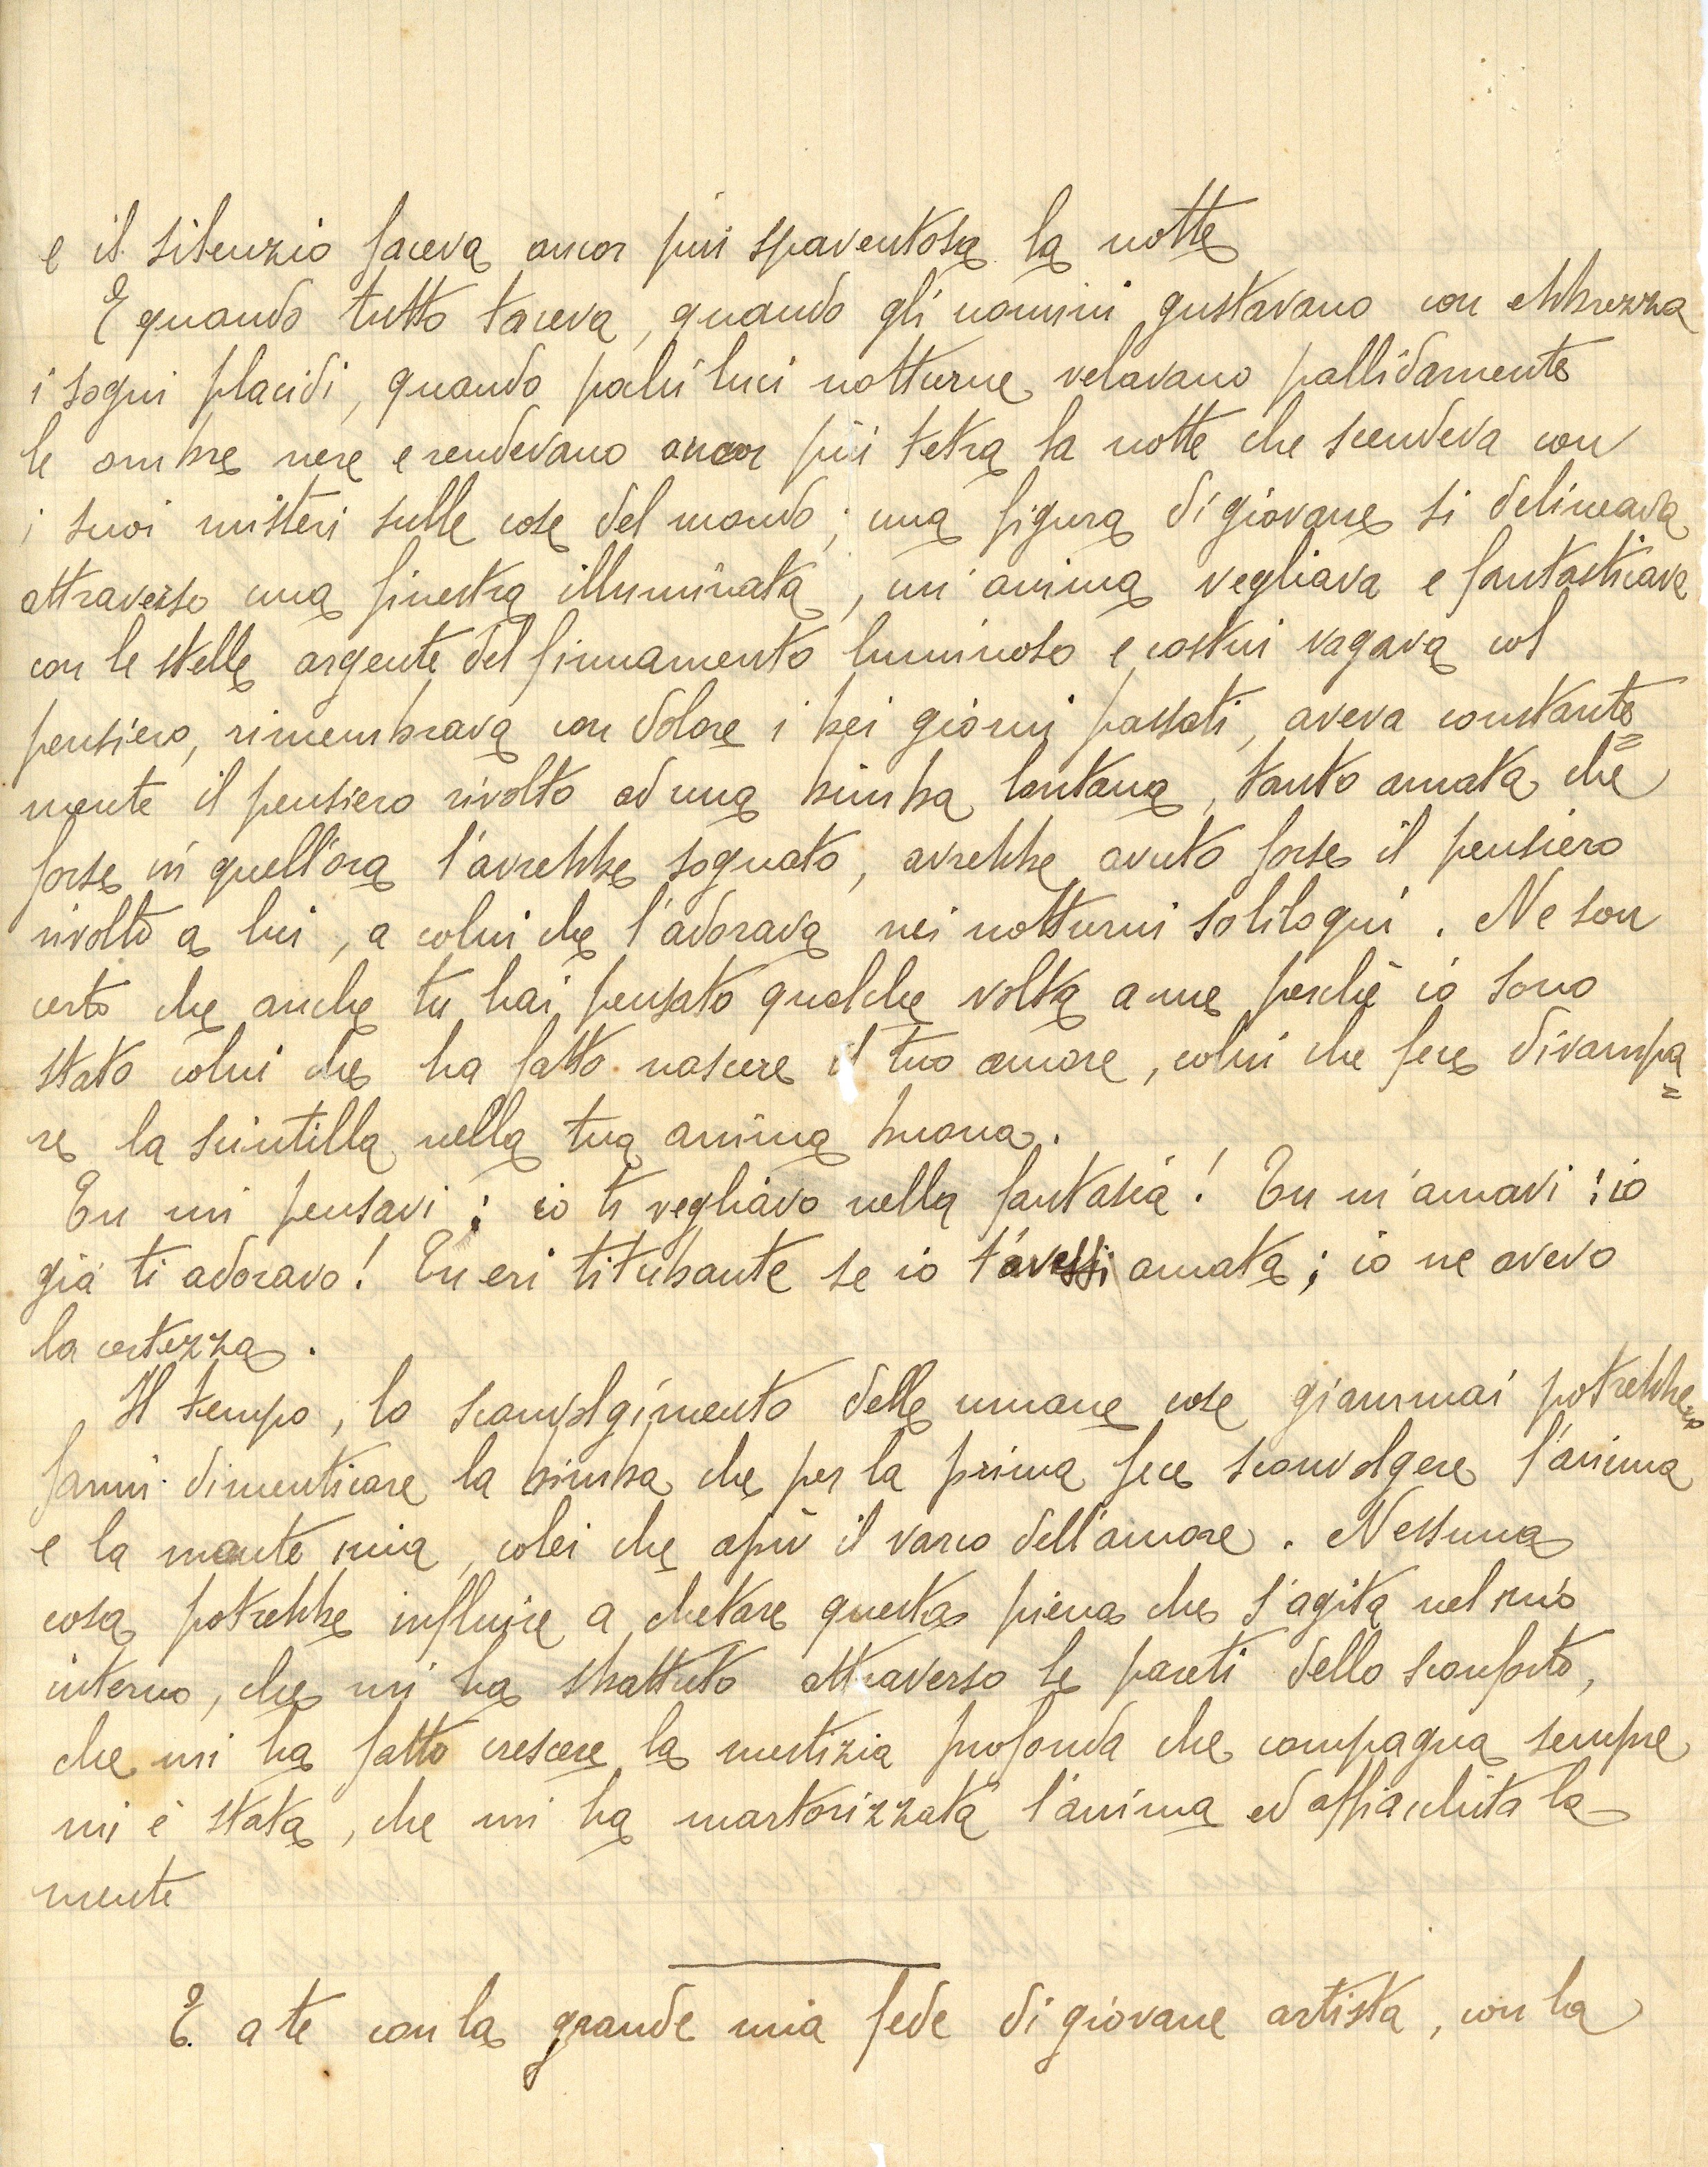 e il silenzio faceva ancor più spaventosa la notte
E quando tutto taceva, quando gli uomini gustavano con ebbrezza
i sogni placidi, quando pochi luci notturne velavano pallidamente
le ombre nere e rendevano ancor più tetra la notte che scendeva con
i suoi misteri sulle cose del mondo; una figura di giovane si delineava
attraverso una finestra illuminata, un'anima vegliava e fantasticava
con le stelle argente del firmamento luminoso e costui vagava col
pensiero, rimembrava con dolore i bei giorni passati, aveva constante=
mente il pensiero rivolto ad una bimba lontana, tanto amata che
forse in quell'ora l'avrebbe sognato, avrebbe avuto forse il pensiero
rivolto a lui, a colui che l'adorava nei notturni soliloqui. Ne son
certo che anche tu hai pensato qualche volta a me perchè io sono
stato colui che ha fatto nascere il tuo amore, colui che fece divampa=
re la scintilla nella tua anima buona.
Tu mi pensavi; io ti vegliavo nella fantasia! Tu m'amavi; io
già ti adoravo! Tu eri titubante se io t'avessi amata; io ne avevo
la certezza.
Il tempo, lo sconvolgimento delle umane cose giammai potrebbero
farmi dimenticare la bimba che per la prima fece sconvolgere l'anima
e la mente mia, colei che aprì il varco dell'amore. Nessuna
cosa potrebbe influire a chetare questa piena che s'agita nel mio
interno, che mi ha sbattuto attraverso le pareti dello sconforto,
che mi ha fatto crescere la mestizia profonda che compagna sempre
mi è stata, che mi ha martorizzata l'anima ed affiacchita la
mente
E a te con la grande mia fede di giovane artista, con la